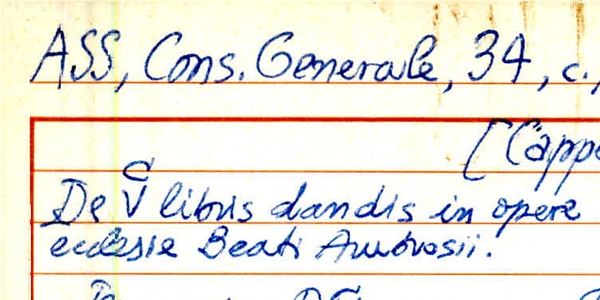 ASS, Cons. Generale, 34, c.
[Cappe
De V̄ᶜ libris dandis in opere
ecclesie Beati Ambrosii.